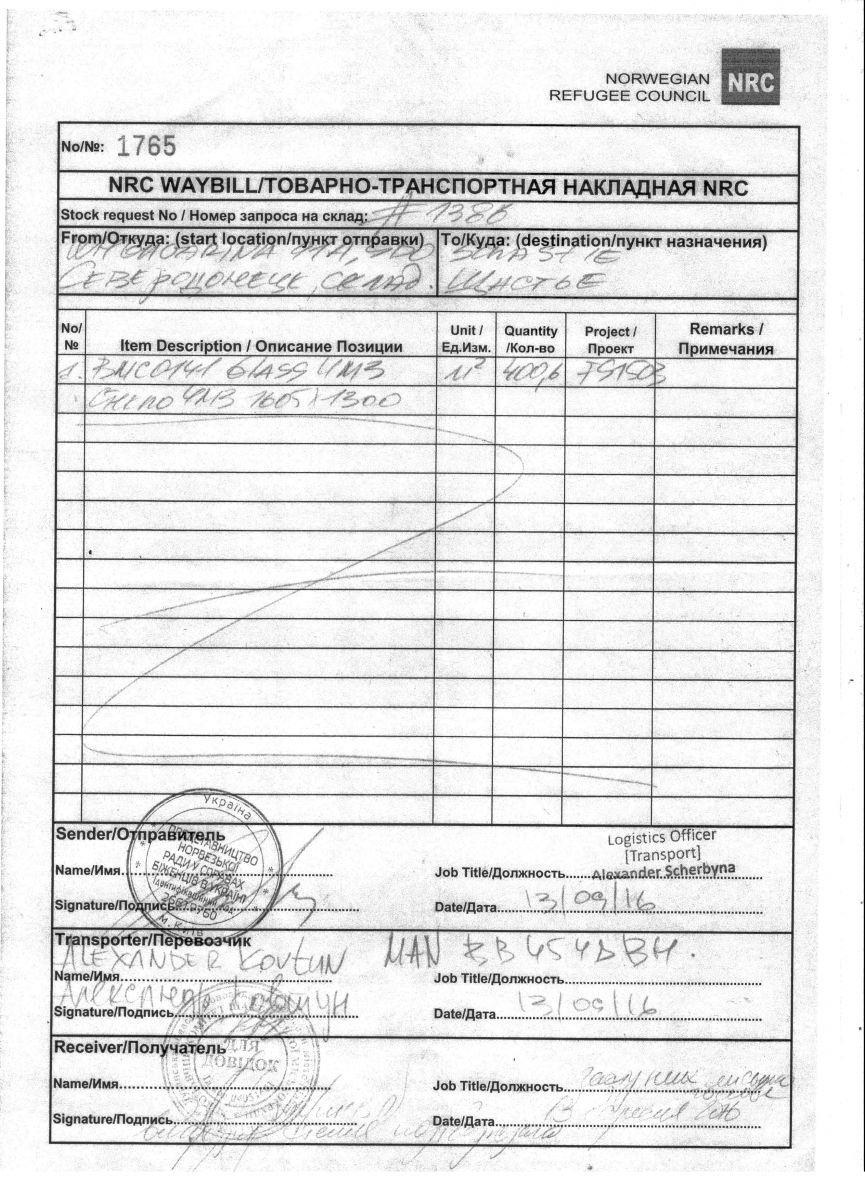 NORWEGIAN
REFUGEE COUNCIL
NRC
No/№: 1765
NRC WAYBILL/ТОВАРНО-ТРАНСПОРТНАЯ НАКЛАДНАЯ NRC
Stock request No / Номер запроса на склад: # 1386
From/Откуда: (start location/пункт отправки) To/Куда: (destination/пункт назначения)
Северодонецк, склад. Щастье
No/№ Item Description / Описание Позиции Unit / Ед.Изм. Quantity /Кол-во Project / Проект Remarks / Примечания
1. BMC0141 GLASS 4M3 м² 400,6
1605х1300
Україна
ПРЕДСТАВНИЦТВО
НОРВЕЗЬКОЇ
РАДИ У СПРАВАХ
БІЖЕНЦІВ В УКРАЇНІ
Ідентифікаційний код
м. Київ
Sender/Отправитель
Logistics Officer
[Transport]
Alexander Scherbyna
Name/Имя Job Title/Должность
Signature/Подпись Date/Дата 13/09/16
Transporter/Перевозчик
ALEXANDER KOVTUN MAN BB4542BH.
Name/Имя Job Title/Должность
Александр Ковтун
Signature/Подпись Date/Дата 13/09/16
Receiver/Получатель
ДЛЯ
ДОВІДОК
Name/Имя Job Title/Должность
Signature/Подпись Date/Дата